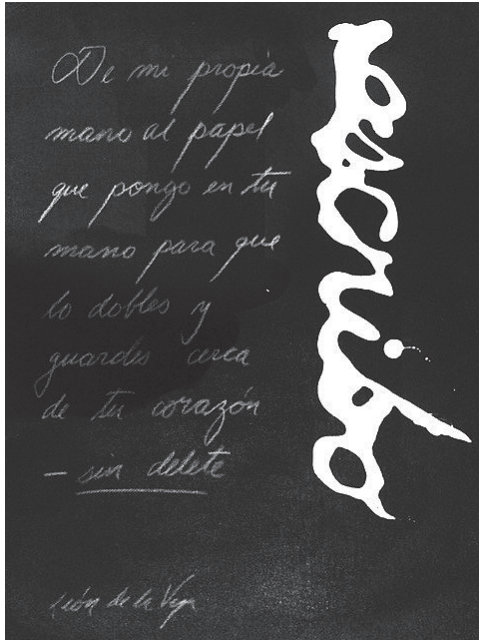 De mi propia
mano al papel
que pongo en tu
mano para que
lo dobles y
guardes cerca
de tu corazón
– sin delete
León de la
rascribo